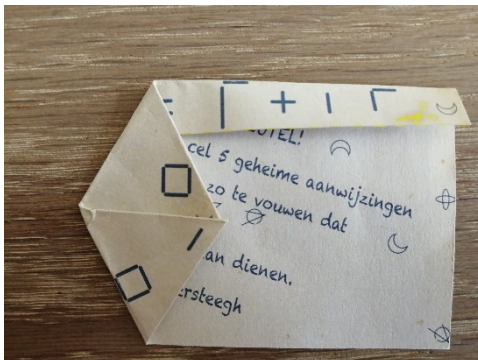 cel 5 geheime aanwijzingen
zo te vouwen dat
an dienen.
ersteegh